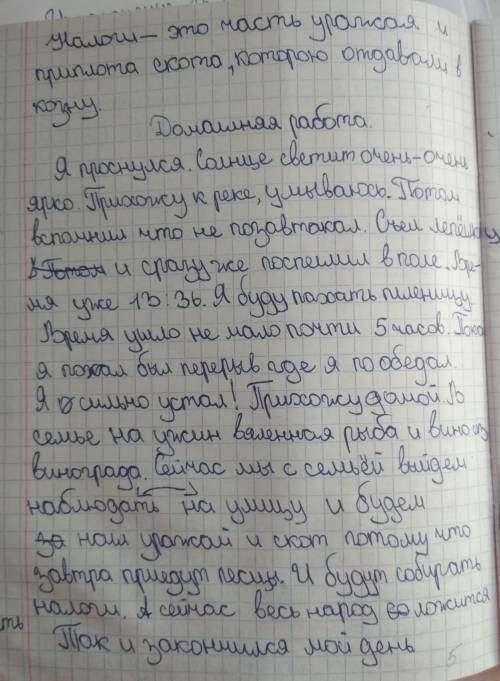 Налоги – это часть урожая и
приплота скота, которою отдавали в
козну.
Домашняя работа.
Я проснулся. Солнце светит очень-очень
ярко. Прихожу к реке, умываюсь. Потом
вспомнил что не позавтакал. Съел лепёшку
Потом и сразу же поспешил в поле. Вре-
мя уже 13:36. Я буду пахать пшеницу
Время ушло не мало почти 5 часов. Пока
я пахал был перерыв где я пообедал.
Я сильно устал! Прихожу домой. В
семье на ужин вяленная рыба и вино из
винограда. Сейчас мы с семьёй выйдем
наблюдать на улицу и будем
за наш урожай и скот потому что
завтра приедут песцы. И будут собирать
налоги. А сейчас весь народ ложится
ть
Так и закончился мой день
5